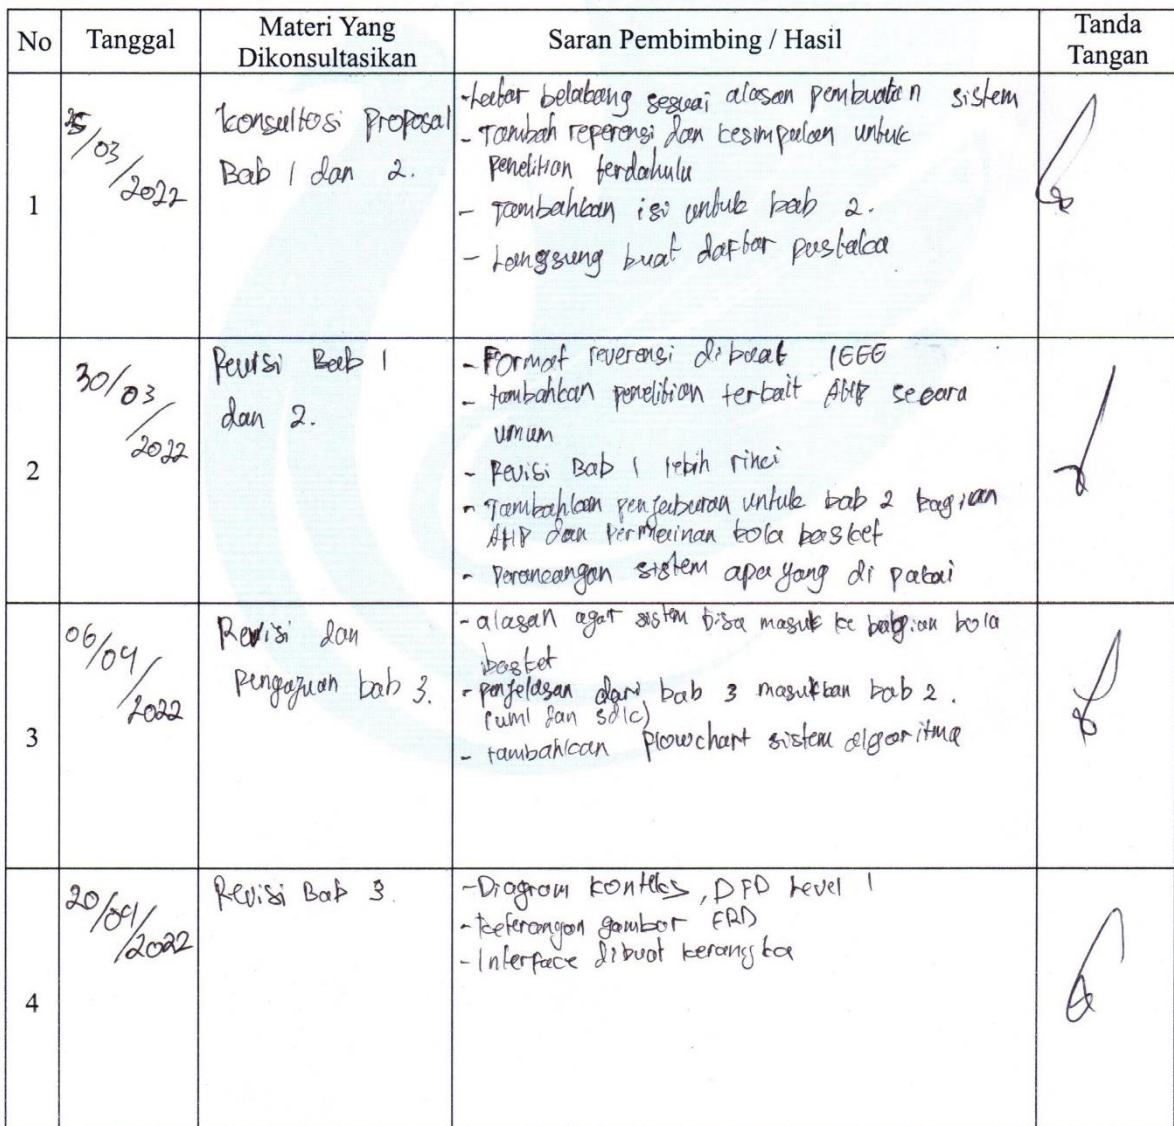 No Tanggal Materi Yang Dikonsultasikan Saran Pembimbing / Hasil Tanda Tangan
1
25/03/2022
Konsultasi Proposal
Bab 1 dan 2.
- Latar belakang sesuai alasan pembuatan sistem
- Tambah reperensi dan kesimpulan untuk
penelitian terdahulu
- Tambahkan isi untuk bab 2.
- Langsung buat daftar pustaka
2
30/03/2022
Revisi Bab 1
dan 2.
- Format reverensi dibuat IEEE
- tambahkan penelitian terkait AHP secara
umum
- Revisi Bab 1 lebih rinci
- Tambahkan penjabaran untuk bab 2 bagian
AHP dan Permainan bola basket
- Perancangan sistem apa yang di pakai
3
06/04/2022
Revisi dan
Pengajuan bab 3.
- alasan agar sistem bisa masuk ke bagian bola
basket
- penjelasan dari bab 3 masukkan bab 2.
(uml dan sdlc)
- tambahkan plowchart sistem algoritma
4
20/04/2022
Revisi Bab 3.
- Diagram konteks, DFD Level 1
- keterangan gambar ERD
- Interface dibuat kerangka